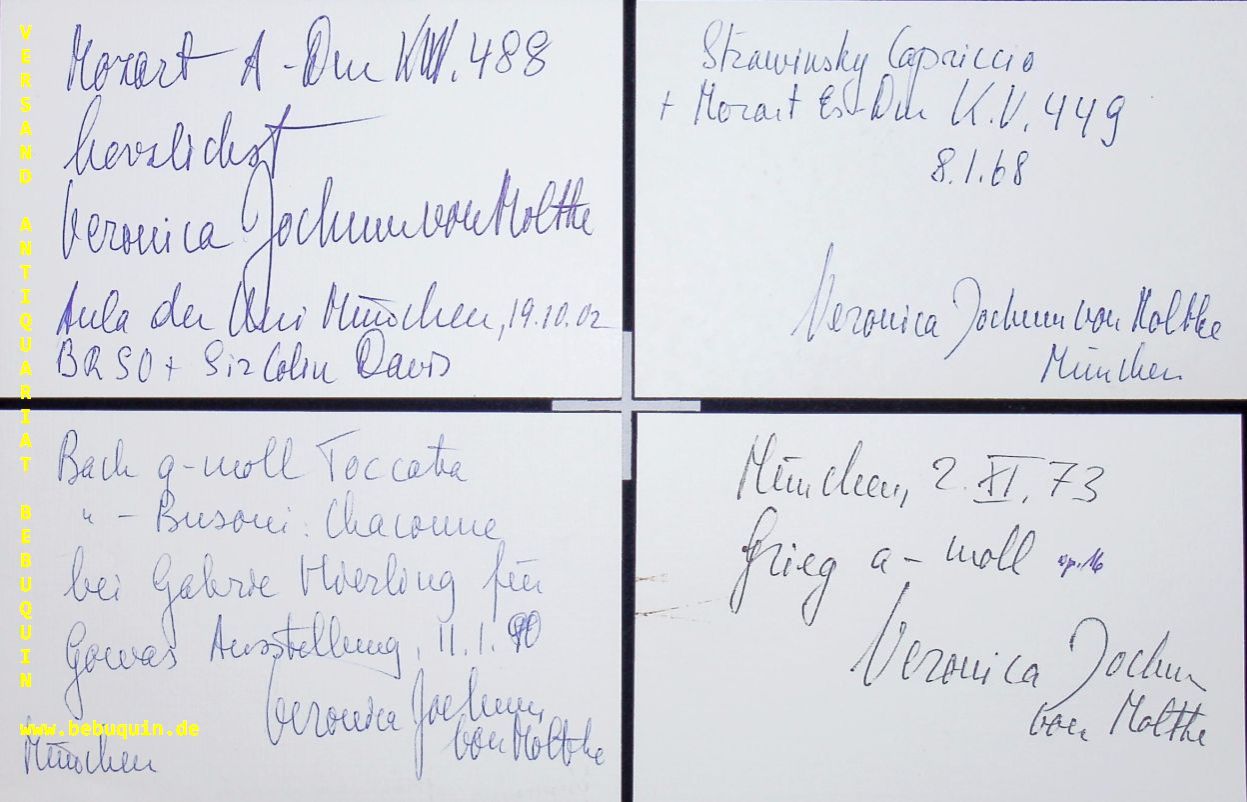 Mozart A-Dur KV. 488
herzlichst
Veronica Jochum von Moltke
Aula der Uni München, 19.10.02
BRSO + Sir Colin Davis
Strawinsky Capriccio
+ Mozart Es-Dur K.V. 449
8.1.68
Veronica Jochum von Moltke
München
Bach g-moll Toccata
" - Busoni: Chaconne
bei Galerie für
Ausstellung, 11.1.90
Veronica Jochum
von Moltke
München
München, 2. XI. 73
Grieg a-moll op. 16
Veronica Jochum
von Moltke
VERSAND ANTIQUARIAT BEBUQUIN
www.bebuquin.de